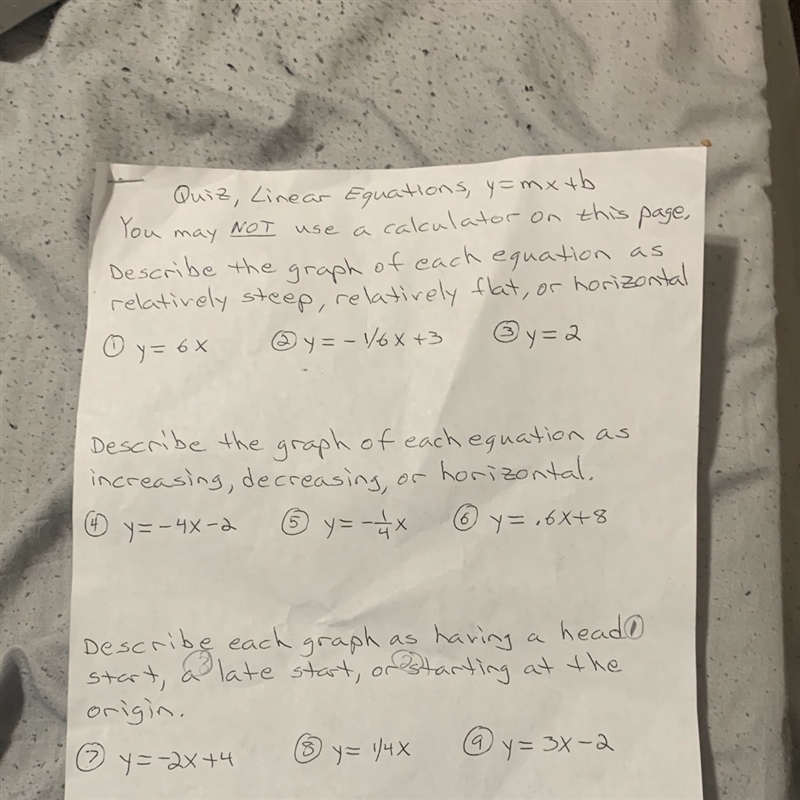 Quiz, Linear Equations, y=mx+b
You may NOT use a calculator on this page.
Describe the graph of each equation as
relatively steep, relatively flat, or horizontal
① y = 6x ② y = - 1/6x +3 ③ y = 2
Describe the graph of each equation as
increasing, decreasing, or horizontal.
④ y = -4x -2 ⑤ y = -1/4 x ⑥ y = .6x+8
Describe each graph as having a head ①
start, a ③ late start, or ② starting at the
origin.
⑦ y = -2x +4 ⑧ y = 1/4x ⑨ y = 3x -2